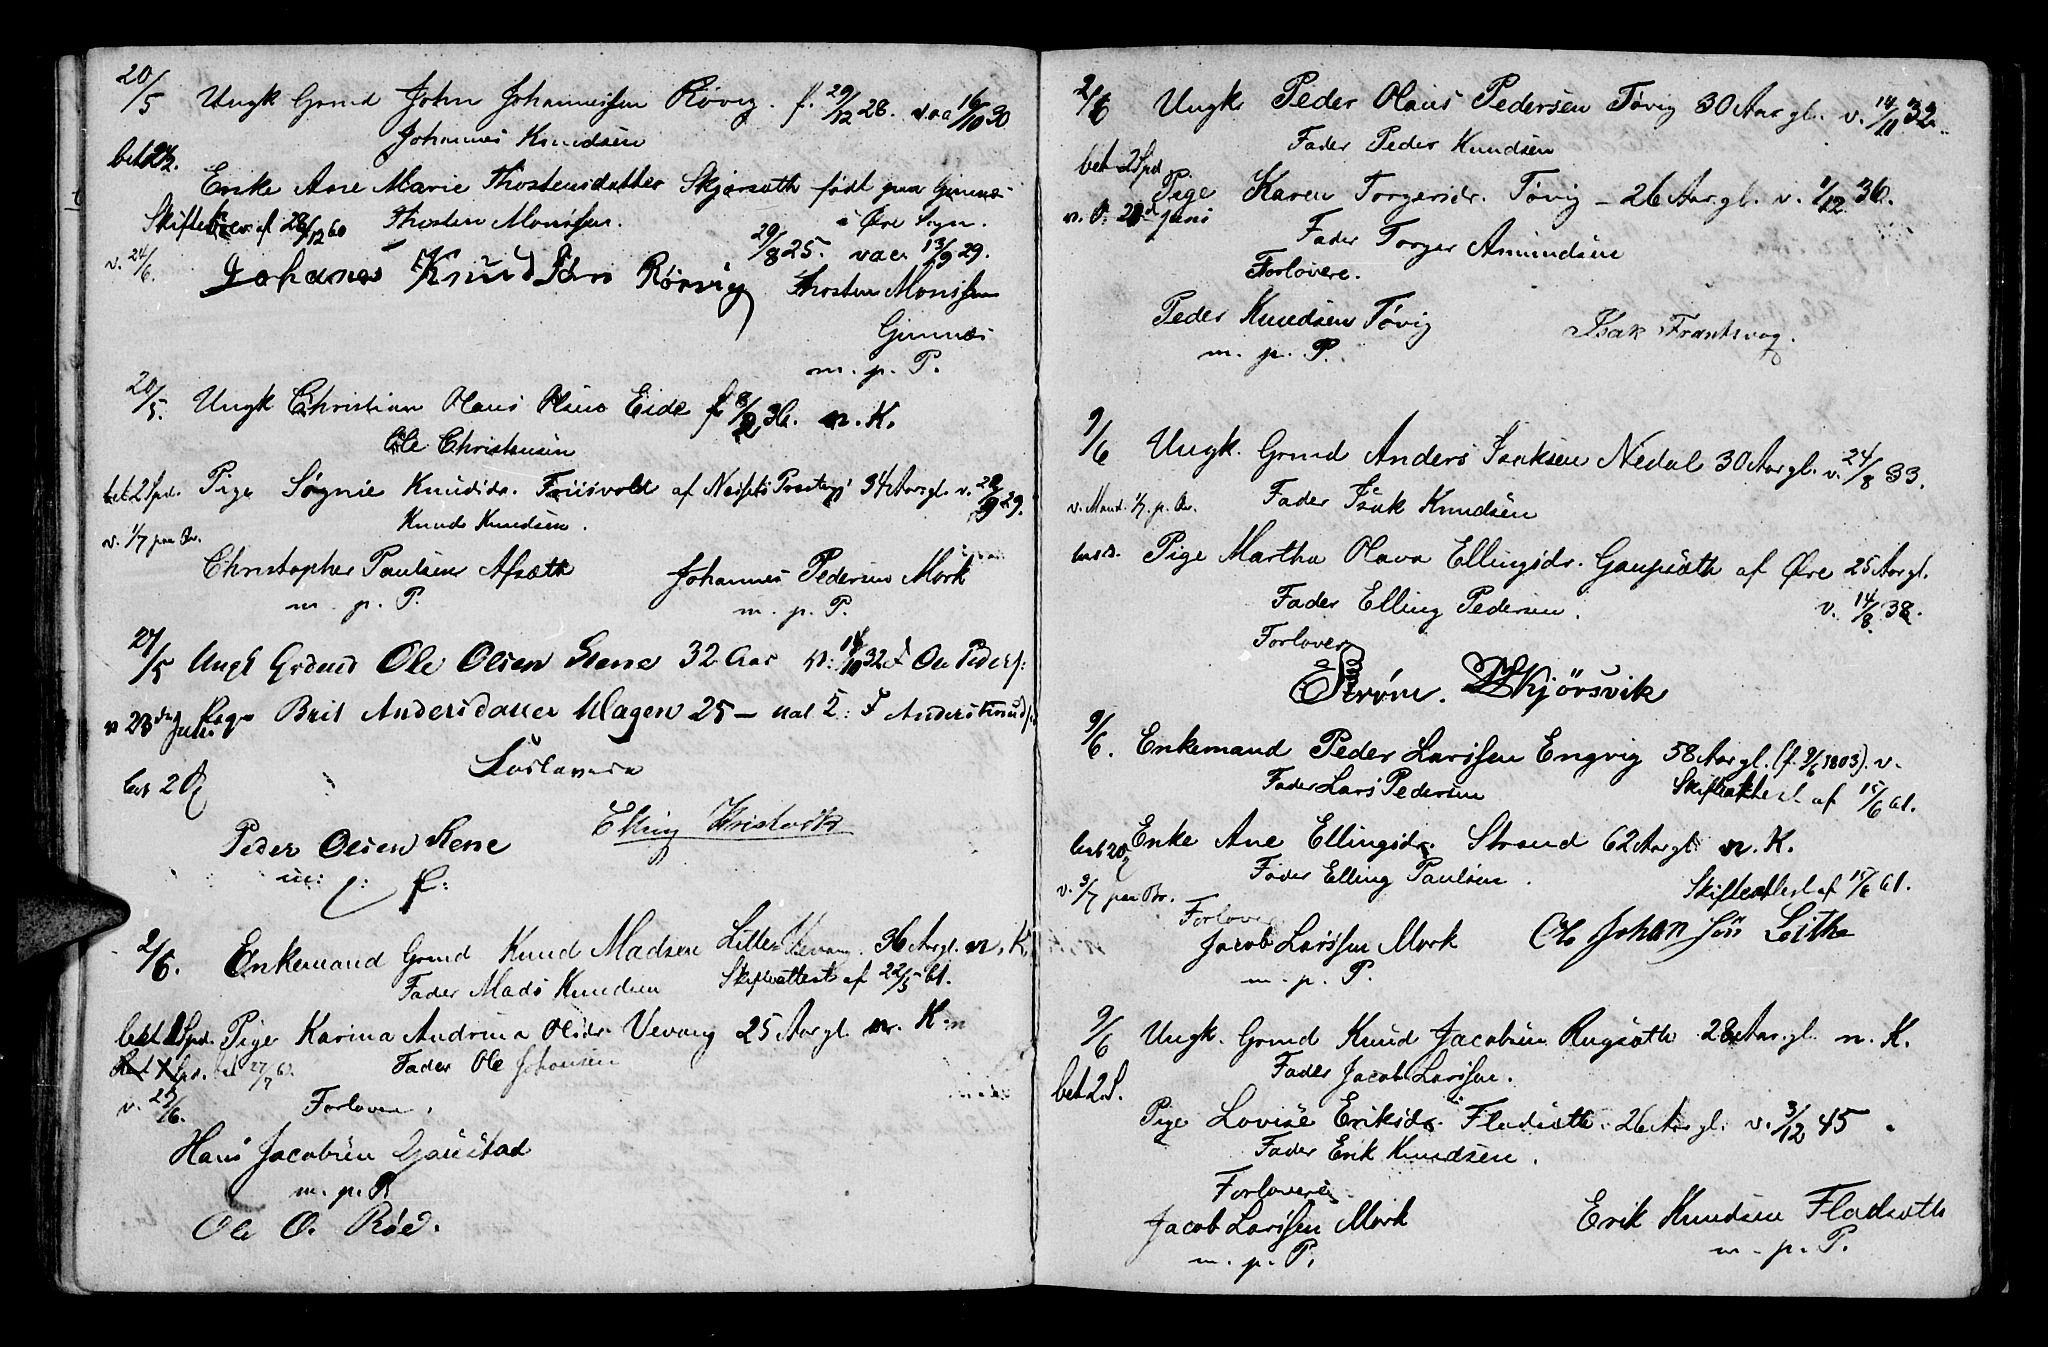 20/5 Ungk Grmd John Johannessen Røvig. f. 29/12 28. vac 16/10 30
Johannes Knudsen
bet 2
Enke Ane Marie Thostensdatter Skjørsæth født paa Gimnes
Skiftebrev af 28/12 60 Thosten Monssen. i Øre Sogn.
v. 24/6. 29/8 25. vac. 13/9 29.
Johanes Knudsøn Rørvig Thosten Monssen
Gimnes
m. p. P.
20/5. Ungk Christian Olaus Olsen Eide f. 8/2 36. n. K.
Ole Christensen
bet 2 Spd. Pige Søgnie Knudsdr. Friisvold af Nessets Prestegj 34 Aar gl. v. 29.
v. 1/7 paa Br. Knud Knudsen.
Christopher Paulsen Asæth Johannes Pedersen Mork
m. p. P. m. p. P.
27/5 Ungk Grdmd Ole Olsen Stene 32 Aar v: 14/10 32 F Ole Peders:
v 23de Juni Pige Brit Andersdatter Hagen 25 – F Anders Knuds
Forlovere
bet 2
Elling Kristvik
Peder Olsen Stene
m: p: P:
2/6. Enkemand Grmd Knud Madsen Lille Vevang. 36 Aar gl. n. K.
Fader Mads Knudsen Skifteattest af 22/5 61.
bet 1 Spd. Pige Karina Andrina Olsdr Vevang 25 Aar gl. n. K.
bet 27/7 61 Fader Ole Johansen
v. 23/6. Forlovere.
Hans Jacobsen Gaustad
m. p. P.
Ole O. Røed.
2/6 Ungk. Peder Olaus Pedersen Tøvig 30 Aar gl. v. 14/11 32.
Fader Peder Knudsen
bet 2 Spd
Pige Karen Torgersdr. Tøvig – 26 Aar gl. v. 1/12 36.
v. Juni
Fader Torger Amundsen
Forlovere.
Peder Knudsen Tøvig Isak Frantsvog.
m. p. P.
9/6 Ungk. Grmd Anders Isaksen Nedal 30 Aar gl. v. 24/8 33.
v. Mand. 1/7. p. Br. Fader Isak Knudsen
Pige Martha Olava Ellingsdr. Gaupsæth af Øre 25 Aar gl.
Fader Elling Pedersen. v. 14/8. 38.
Forlovere
Strøm. Skjørsvik
9/6. Enkemand Peder Larssen Engvig 58 Aar gl. (f. 9/6 1803). v.
Fader Lars Pedersen Skifteattest af 15/6 61.
Enke Ane Ellingsdr. Strand 62 Aar gl. n. K.
v. 3/7 paa Br. Fader Elling Paulsen. Skifteattest af 15/6 61.
Forlovere
Jacob Larssen Mork Ole Johan søn Leithe
m. p. P.
9/6 Ungk. Grmd Knud Jacobsen Rugsæth 28 Aar gl. n. K.
Fader Jacob Larssen.
bet 2 S.
Pige Lovise Eriksdr. Fladsæth. 26 Aar gl. v. 3/12 45
Fader Erik Knudsen.
Forlovere
Jacob Larssen Mork Erik Knudsen Fladsæth
m. p. P. m. p. P.